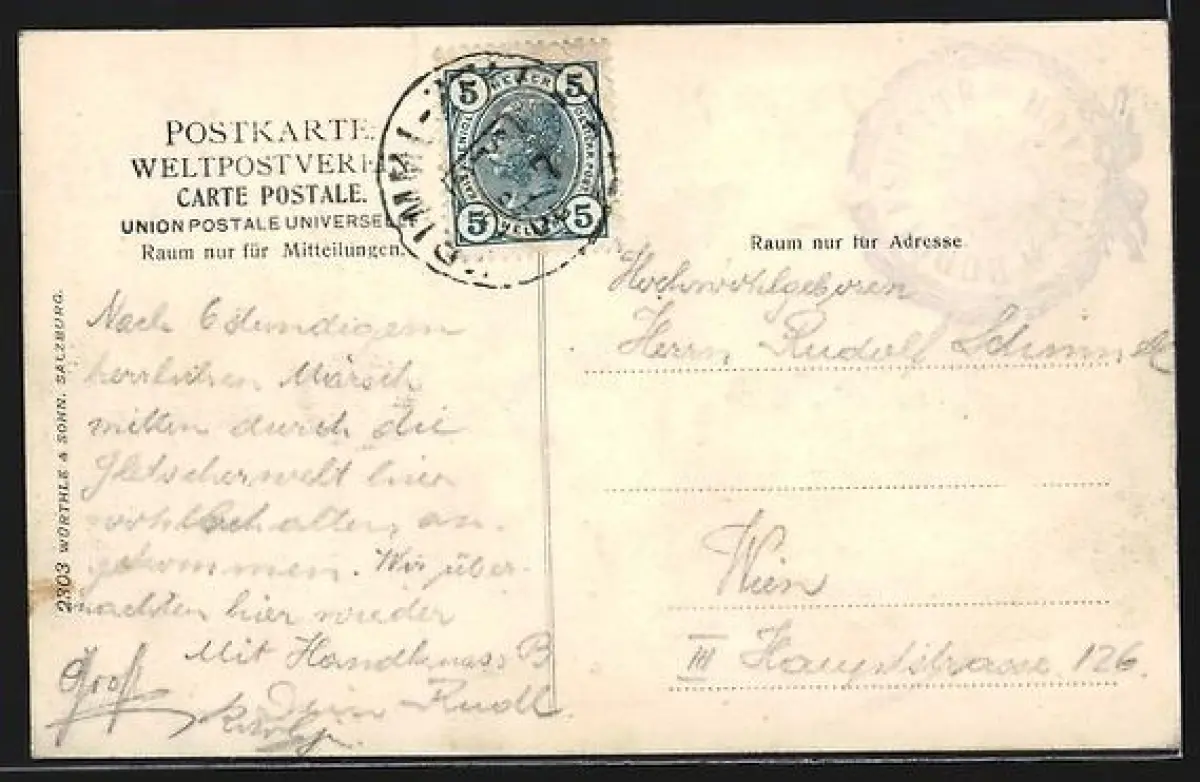 POSTKARTE.
WELTPOSTVEREIN
CARTE POSTALE.
UNION POSTALE UNIVERSELLE
Raum nur für Mitteilungen.
5 HELLER 5
5 HELLER 5
Raum nur für Adresse
Nach 6 stündigem
herrlichen Marsch
mitten durch die
Gletscherwelt hier
wohlbehalten an-
gekommen. Wir über-
nachten hier wieder
Mit Handkuss
Dein Rudl.
Hochwohlgeboren
Herrn Rudolf
Wien
III Hauptstrasse 126.
2303 WÜRTHLE & SOHN, SALZBURG.